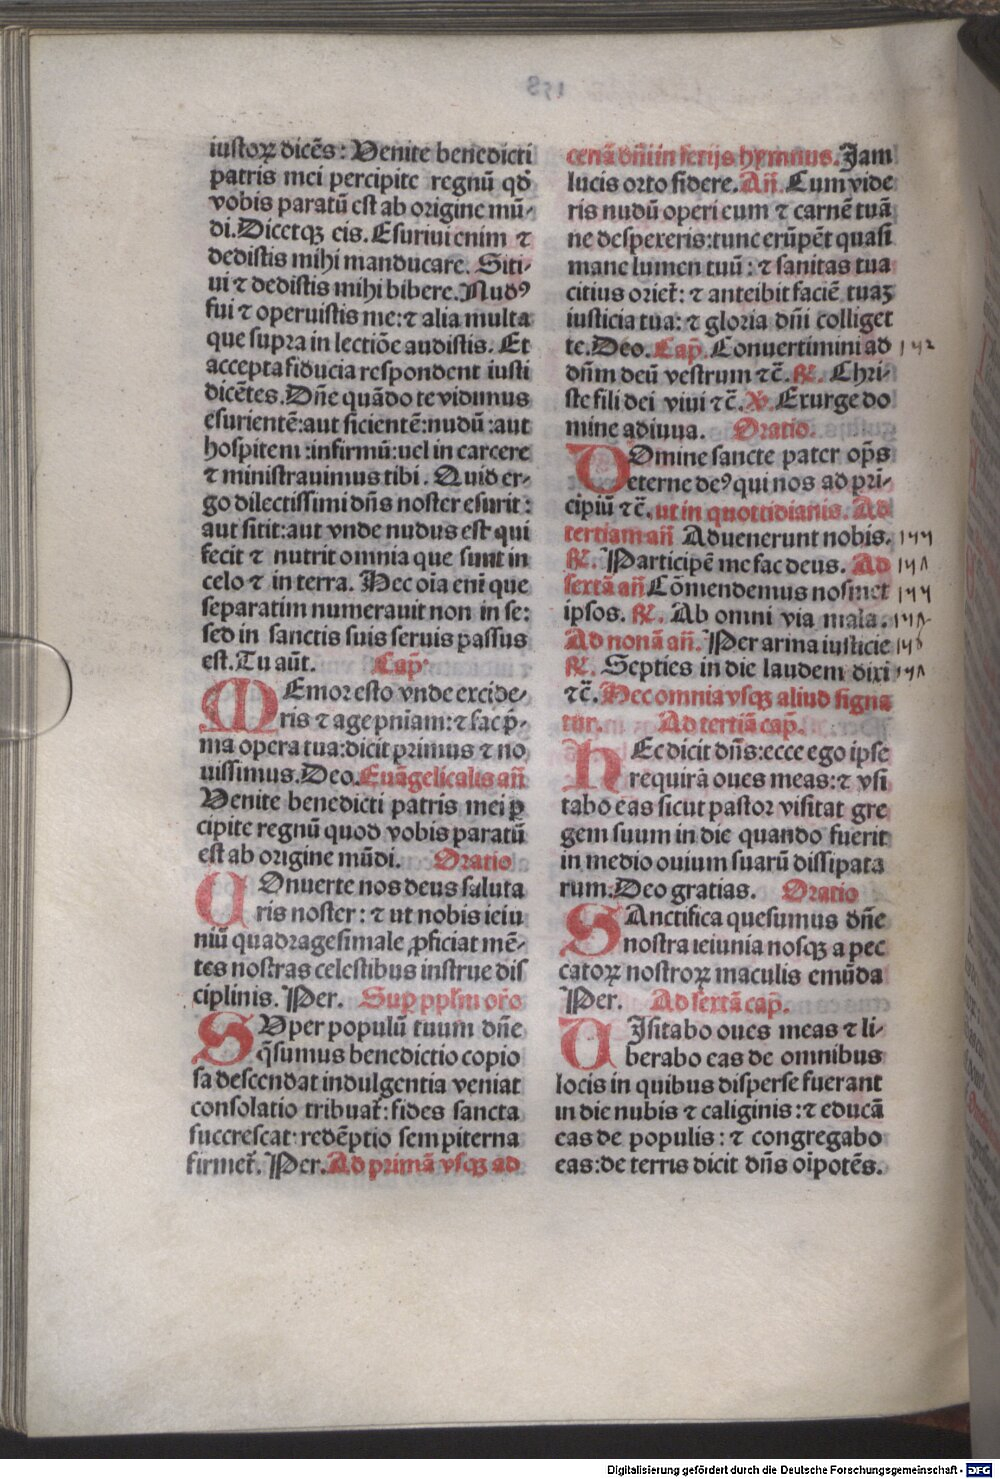 iustoꝝ dicēs: Venite benedicti
patris mei percipite regnū qđ
vobis paratū est ab origine mū-
di. Dicetqꝫ eis. Esuriui enim ⁊
dedistis mihi manducare. Siti-
ui ⁊ dedistis mihi bibere. Nudꝰ
fui ⁊ operuistis me: ⁊ alia multa
que supra in lectiōe audistis. Et
accepta fiducia respondent iusti
dicētes. Dñe quādo te vidimus
esurientē: aut sicientē: nudū: aut
hospitem: infirmū: uel in carcere
⁊ ministrauimus tibi. Quid er-
go dilectissimi dñs noster esurit:
aut sitit: aut vnde nudus est qui
fecit ⁊ nutrit omnia que sunt in
celo ⁊ in terra. Hec oīa enī que
separatim numerauit non in se:
sed in sanctis suis seruis passus
est. Tu aūt. Cap̄.
MEmor esto vnde excide-
ris ⁊ age pniam: ⁊ fac p̄-
ma opera tua: dicit primus ⁊ no
uissimus. Deo. Euāgelicalis añ
Venite benedicti patris mei ꝑ
cipite regnū quod vobis paratū
est ab origine mūdi. Oratio
COnuerte nos deus saluta
ris noster: ⁊ ut nobis ieiu
niū quadragesimale ꝓficiat mē-
tes nostras celestibus instrue dis
ciplinis. Per. Sup ppl'm oro
SVper populū tuum dñe
q̄sumus benedictio copio
sa descendat indulgentia veniat
consolatio tribuat᷑: fides sancta
succrescat: redēptio sempiterna
firmet᷑. Per. Ad primā vsqꝫ ad
cenā dñi in ferijs hymnus. Jam
lucis orto sidere. Añ. Cum vide
ris nudū operi eum ⁊ carnē tuā
ne despexeris: tunc erūpēt quasi
mane lumen tuū: ⁊ sanitas tua
citius oriet᷑: ⁊ anteibit faciē tuaꝫ
iusticia tua: ⁊ gloria dñi colliget
te. Deo. Cap̄. Conuertimini ad
dñm deū vestrum ⁊c̄. ℟. Chri-
ste fili dei viui ⁊c̄. ℣. Exurge do
mine adiuua. Oratio.
DOmine sancte pater op̄s
eterne deꝰ qui nos ad pri-
cipiū ⁊c̄. ut in quottidianis. Ad
tertiam añ Aduenerunt nobis.
℟. Participē me fac deus. Ad
sextā añ Cōmendemus nosmet
ipsos. ℟. Ab omni via mala.
Ad nonā añ. Per arma iusticie
℟. Septies in die laudem dixi
⁊c̄. Hec omnia vsqꝫ aliud signa
tur. Ad tertiā cap̄.
HEc dicit dñs: ecce ego ipse
requirā oues meas: ⁊ visi
tabo eas sicut pastor visitat gre
gem suum in die quando fuerit
in medio ouium suarū dissipata
rum: Deo gratias. Oratio
SAnctifica quesumus dñe
nostra ieiunia nosqꝫ a pec
catoꝝ nostroꝝ maculis emūda
Per. Ad sextā cap̄.
VIsitabo oues meas ⁊ li-
berabo eas de omnibus
locis in quibus disperse fuerant
in die nubis ⁊ caliginis: ⁊ educā
eas de populis: ⁊ congregabo
eas: de terris dicit dñs oīpotēs.
Digitalisierung gefördert durch die Deutsche Forschungsgemeinschaft - DFG